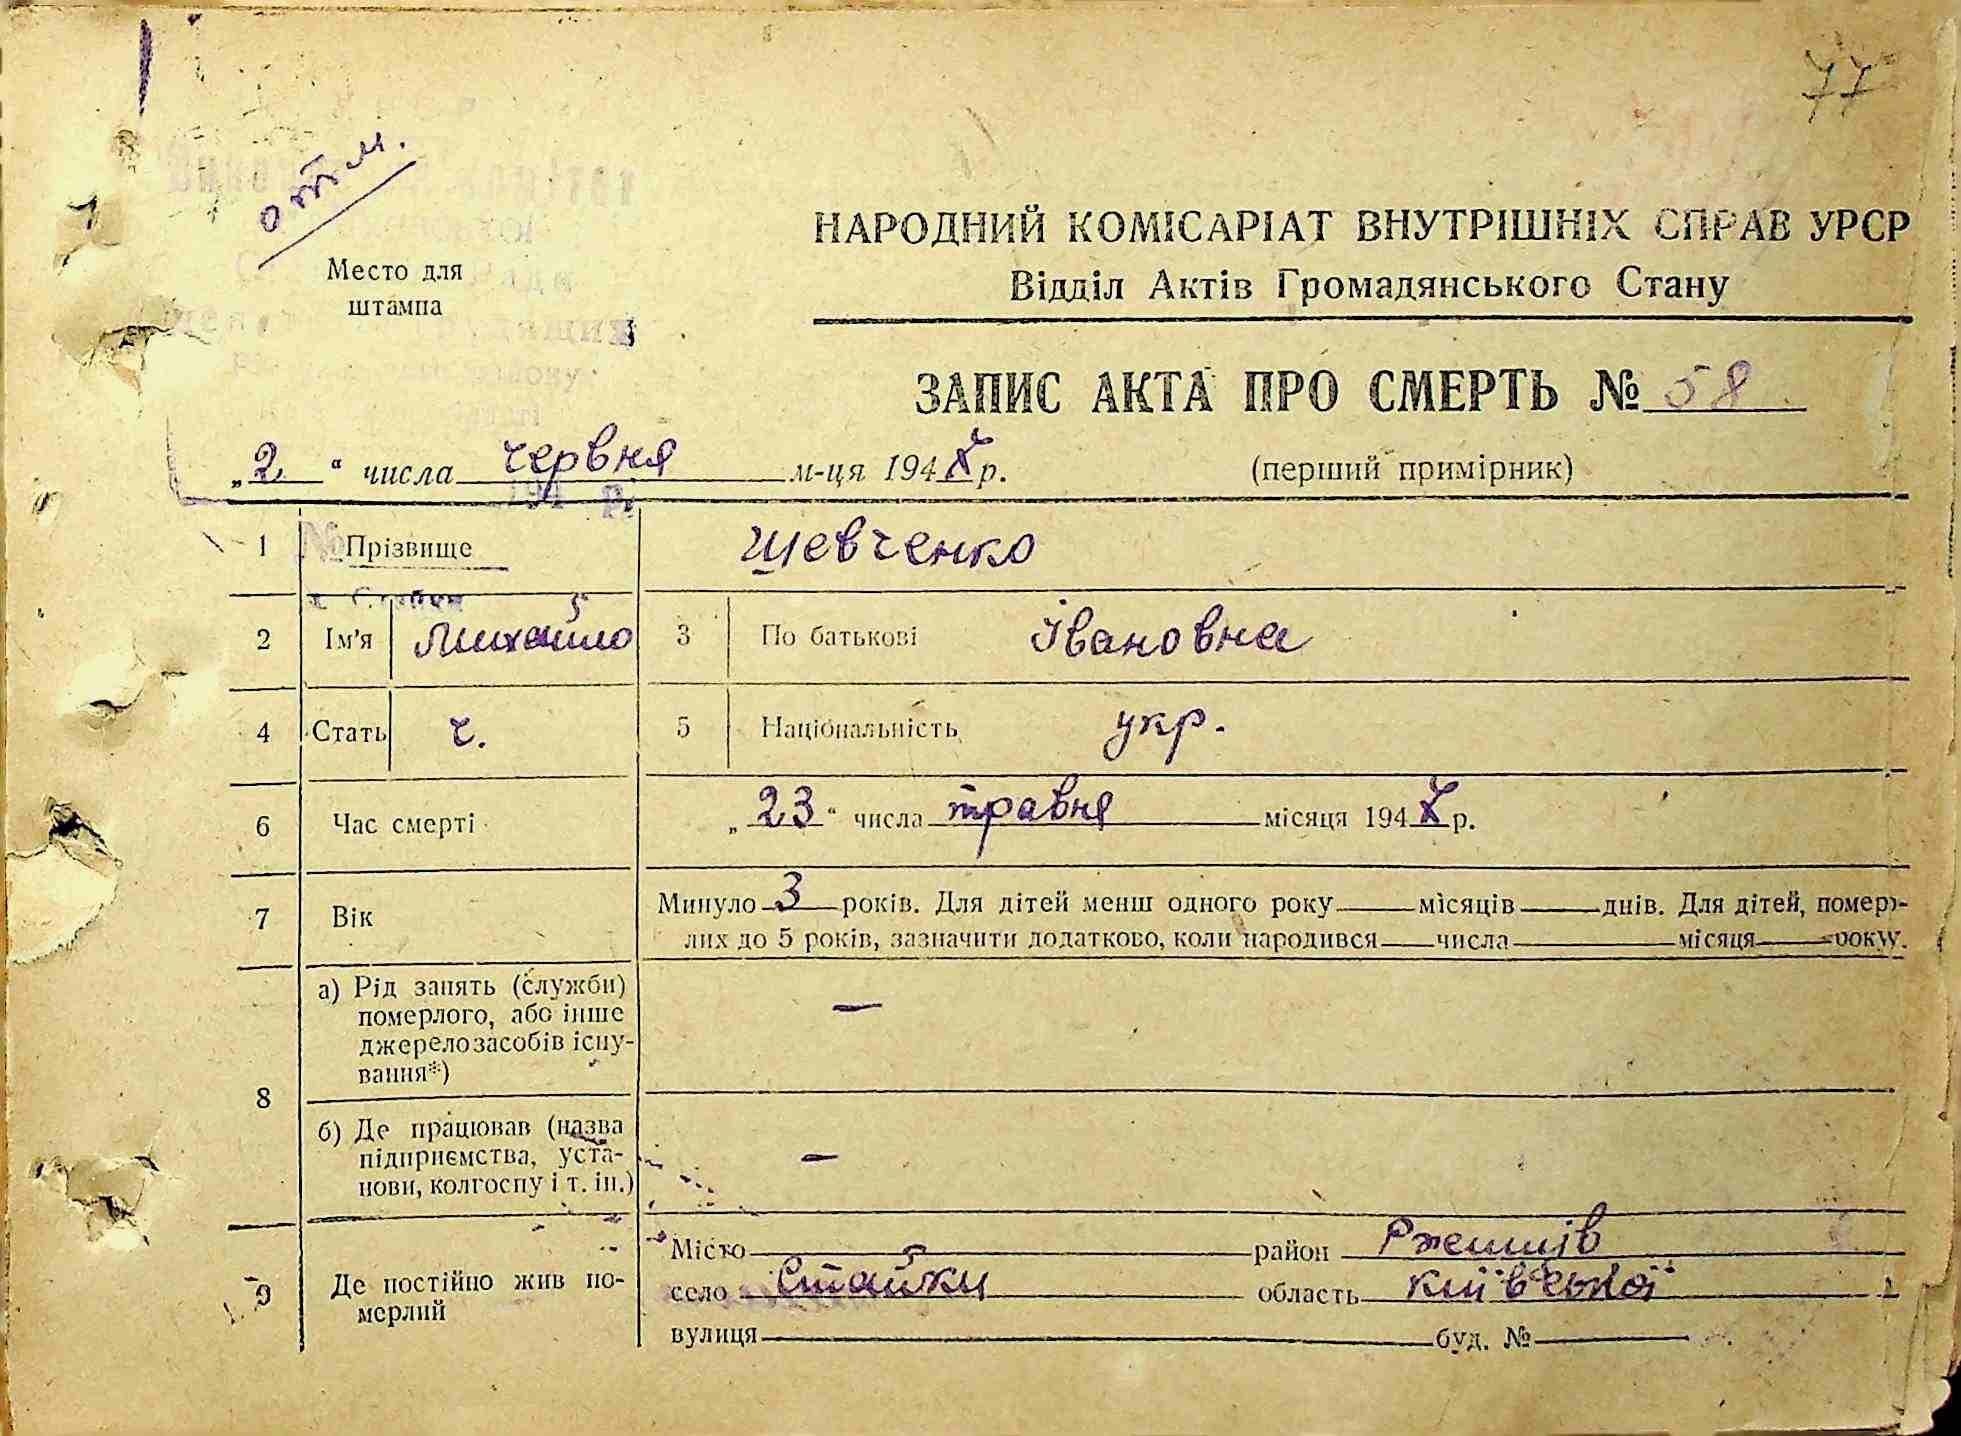 77
отм.
Место для
штампа
НАРОДНИЙ КОМІСАРІАТ ВНУТРІШНІХ СПРАВ УРСР
Відділ Актів Громадянського Стану
ЗАПИС АКТА ПРО СМЕРТЬ № 58
„2“ числа червня м-ця 1947 р. (перший примірник)
1 Прізвище Шевченко
2 Ім'я Михайло 3 По батькові Івановна
4 Стать ч. 5 Національність укр.
6 Час смерті „23“ числа травня місяця 1947 р.
7 Вік Минуло 3 років. Для дітей менш одного року місяців днів. Для дітей, помер-
лих до 5 років, зазначити додатково, коли народився числа місяця року.
8 а) Рід занять (служби)
померлого, або інше
джерело засобів існу-
вання*) —
б) Де працював (назва
підприємства, уста-
нови, колгоспу і т. ін.) —
9 Де постійно жив по-
мерлий
Місто район Ржищів
село Стайки область київської
вулиця буд. №